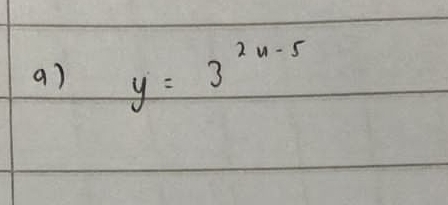 a) y = 3^{2x-5}